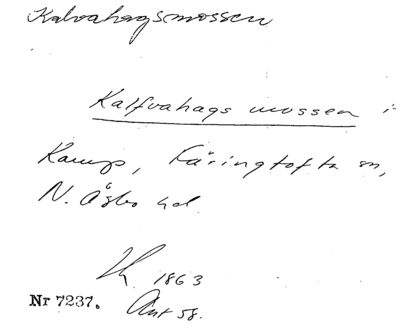 Kalvahagsmossen
Kalfvahags mossen i
Kamp, Färingtofta sn,
N. Åsbo hd.
1863
Nr 7237. Ant 58.